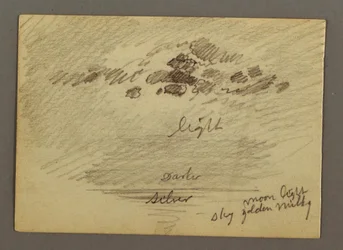 light
darker
silver
moon light
sky golden milky